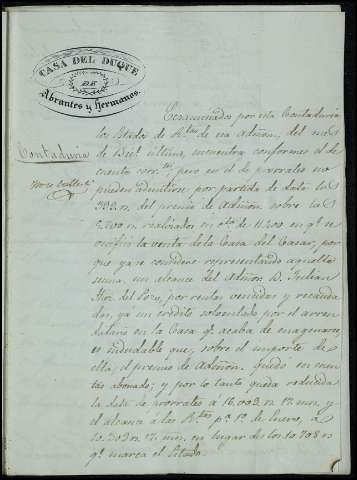 CASA DEL DUQUE
DE
Abrantes y Hermanos.
Contaduria
Examinados por esta Contaduria
los Estados de de esa Admon, del mes
de ultimo, encuentra conformes el de
pero en el de prorrateo no
pueden admitirse por partida de data los
del premio de Admon sobre los
realizados en de 11.300 en qe se
la venta de la Casa del Casar, por
que ya se considere representando aquella
suma, un alcance del Admor D. Julian
por rentas vencidas y recauda
das, ya un credito solventado por el arren
datario en la Casa qe acaba de enagenarse,
es indudable que, sobre el importe de
ella, el premio de Admon quedó en cuen
tas abonado; y por lo tanto queda reducida
la data de prorrateo á 16.009 rs 17 mrs, y
el alcance á las pa 1º de Enero, á
10.309 rs 17 mrs, en lugar de los 10.708 rs
qe marca el Estado.